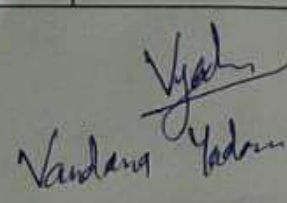 Vyadav
Vandana Yadav